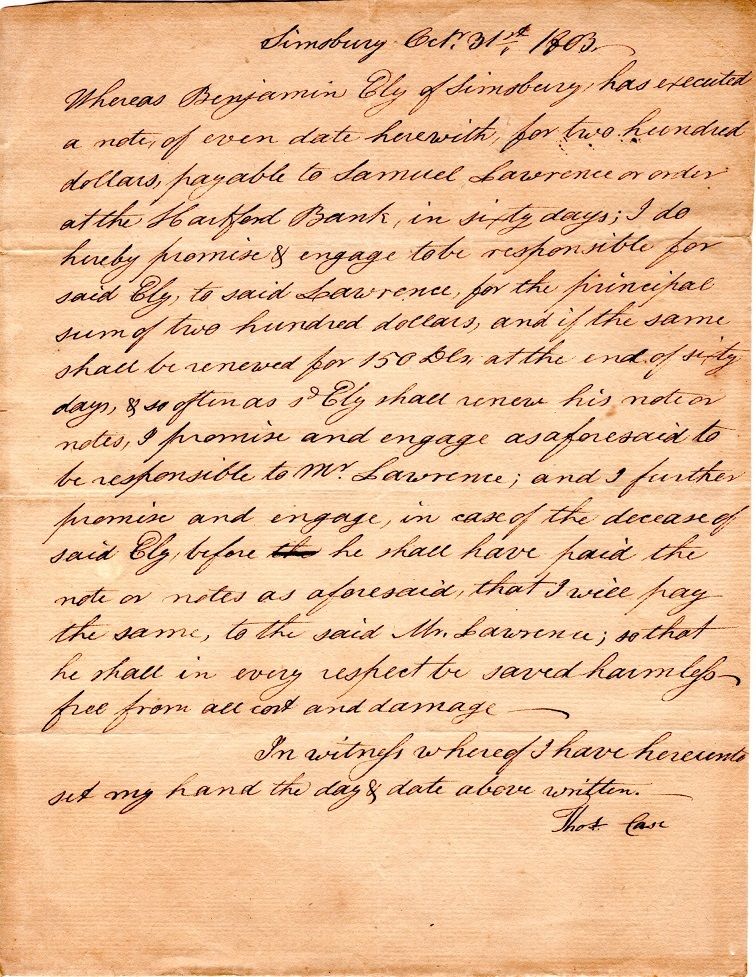 Simsbury Octr. 31st. 1803.
Whereas Benjamin Ely of Simsbury, has executed
a note, of even date herewith, for two hundred
dollars, payable to Samuel Lawrence or order
at the Hartford Bank, in sixty days; I do
hereby promise & engage to be responsible for
said Ely, to said Lawrence, for the principal
sum of two hundred dollars, and if the same
shall be renewed for 150 Dls, at the end of sixty
days, & so often as sd Ely shall renew his note or
notes, I promise and engage as aforesaid to
be responsible to Mr. Lawrence; and I further
promise and engage, in case of the decease of
said Ely, before the he shall have paid the
note or notes as aforesaid, that I will pay
the same, to the said Mr. Lawrence; so that
he shall in every respect be saved harmless
free from all cost and damage
In witness whereof I have hereunto
set my hand the day & date above written.
Thos. Case